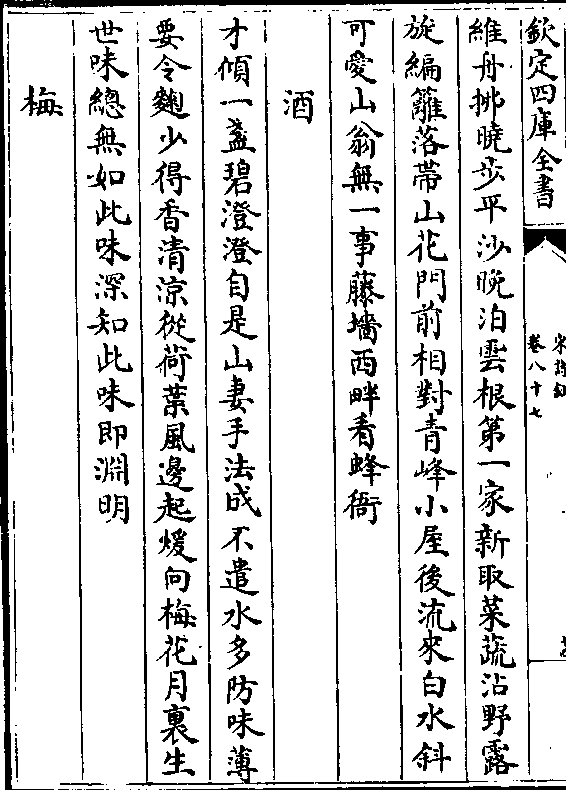 欽定四庫全書
宋詩鈔
卷八十七
維舟挑曉步平沙晚泊雲根第一家新取菜蔬沾野露
旋編籬落帶山花門前相對青峰小屋後流來白水斜
可愛山翁無一事藤墻西畔看蜂衙
酒
才傾一盞碧澄澄自是山妻手法成不遣水多防味薄
要令麴少得香清涼從荷葉風邊起煖向梅花月裏生
世味總無如此味深知此味即淵明
梅